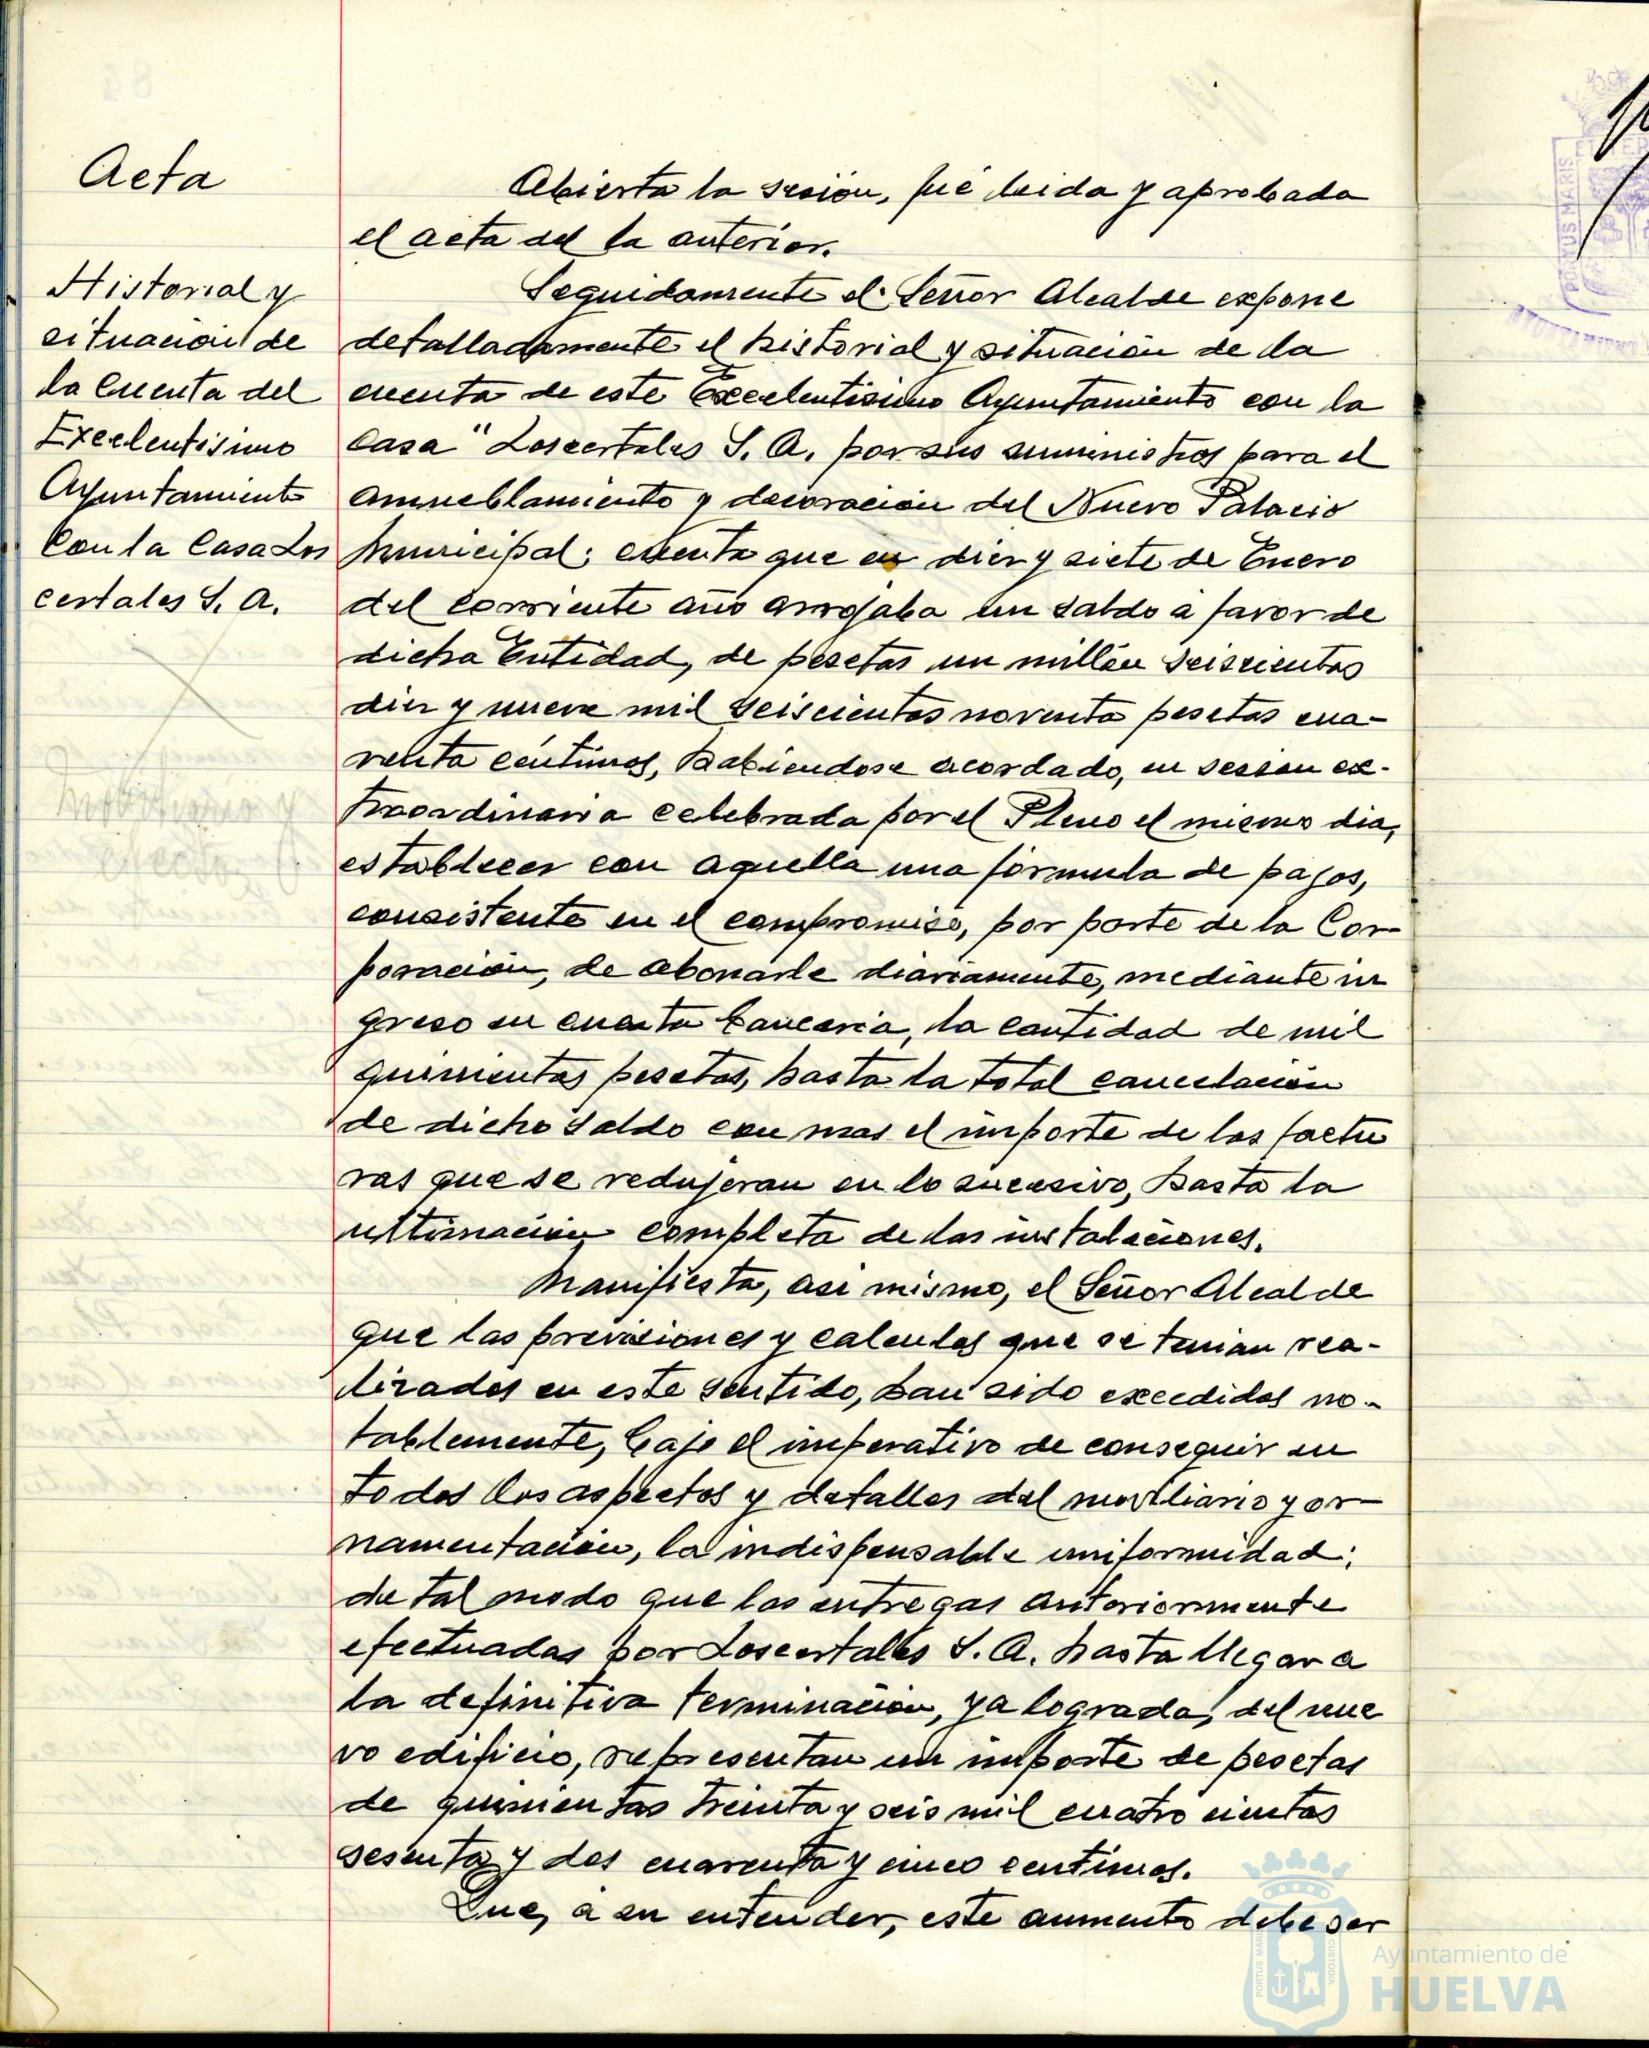 Acta
Historial y
situación de
la Cuenta del
Excelentisimo
Ayuntamiento
con la Casa Los
certales S. A.
Abierta la sesión, fué leida y aprobada
el acta del la anterior.
Seguidamente el Señor Alcalde expone
detalladamente el historial y situación de la
cuenta de este Excelentisimo Ayuntamiento con la
Casa " Loscertales S. A. por sus suministros para el
amueblamiento y decoración del Nuevo Palacio
Municipal; cuenta que en diez y siete de Enero
del corriente año arrojaba un saldo a favor de
dicha Entidad, de pesetas un millón seiscientos
diez y nueve mil seiscientos noventa pesetas cua-
renta céntimos, habiendose acordado, en sesion ex-
traordinaria celebrada por el Pleno el mismo dia,
establecer con aquella una fórmula de pagos,
consistente en el compromiso, por parte de la Cor-
poración, de abonarle diariamente, mediante in
greso en cuenta bancaria, la cantidad de mil
quinientas pesetas, hasta la total cancelación
de dicho saldo con mas el importe de las factu
ras que se redujeran en lo sucesivo, hasta la
ultimación completa de las instalaciones.
Manifiesta, asi mismo, el Señor Alcalde
que las previsiones y calculos que se tenian rea-
lizados en este sentido, han sido excedidos no-
tablemente, bajo el imperativo de conseguir en
todos los aspectos y detalles del moviliario y or-
namentación, la indispensable uniformidad;
de tal modo que las entregas anteriormente
efectuadas por Loscertales S. A. hasta llegar a
la definitiva terminación, ya lograda, del nue
vo edificio, representan un importe de pesetas
de quinientas treinta y seis mil cuatro cientas
sesenta y dos cuarenta y cinco centimos.
Que, a su entender, este aumento debe ser
PORTUS MARIS
CUSTODIA
Ayuntamiento de
HUELVA